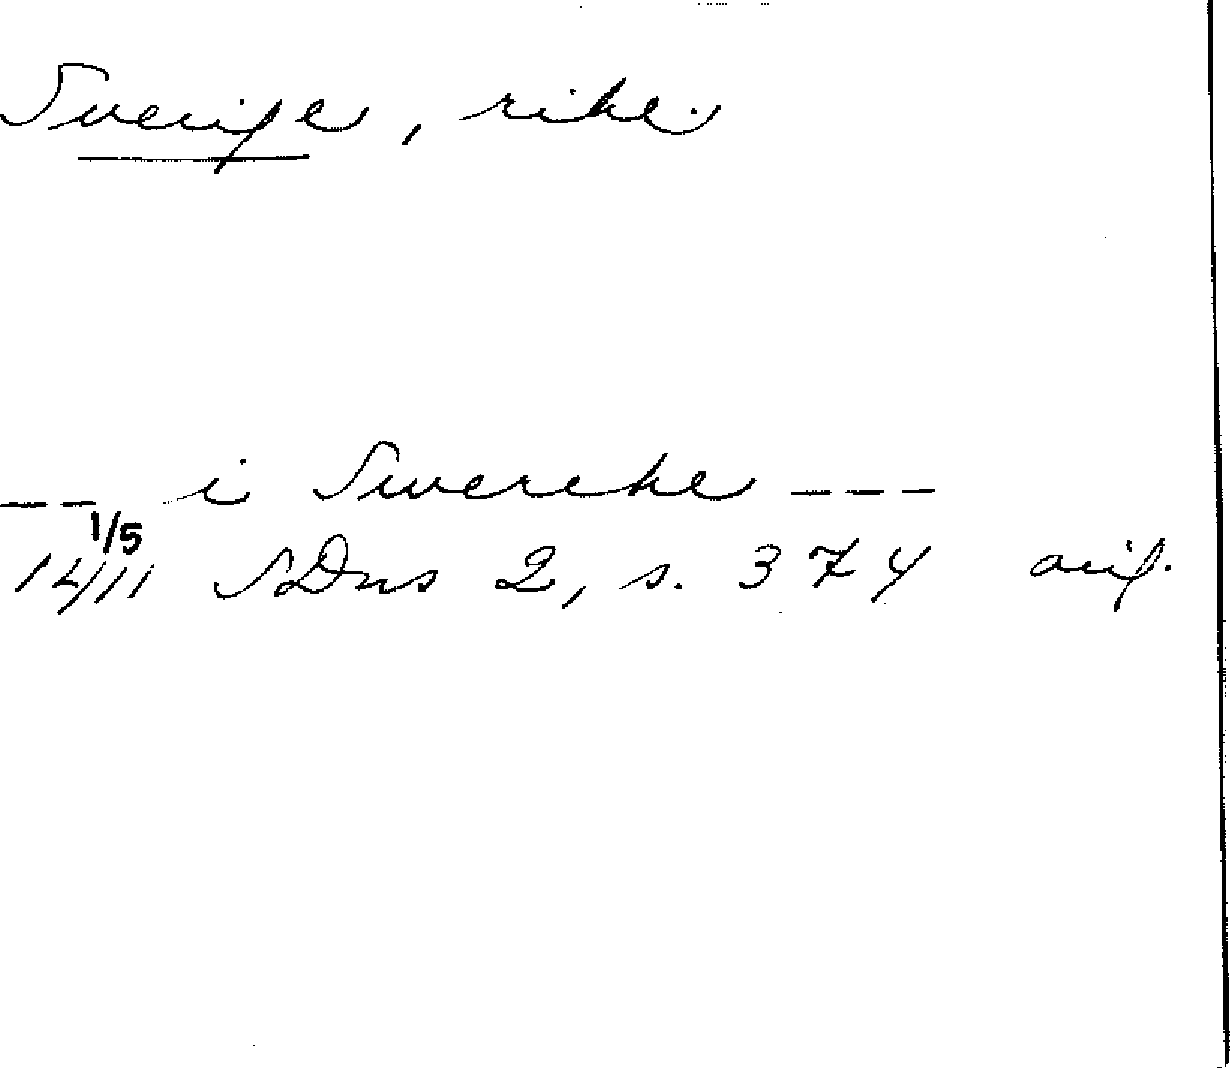 Sverige, rike.
-- i Swereke ---
1/5
1411 SDns 2, s. 374 orig.